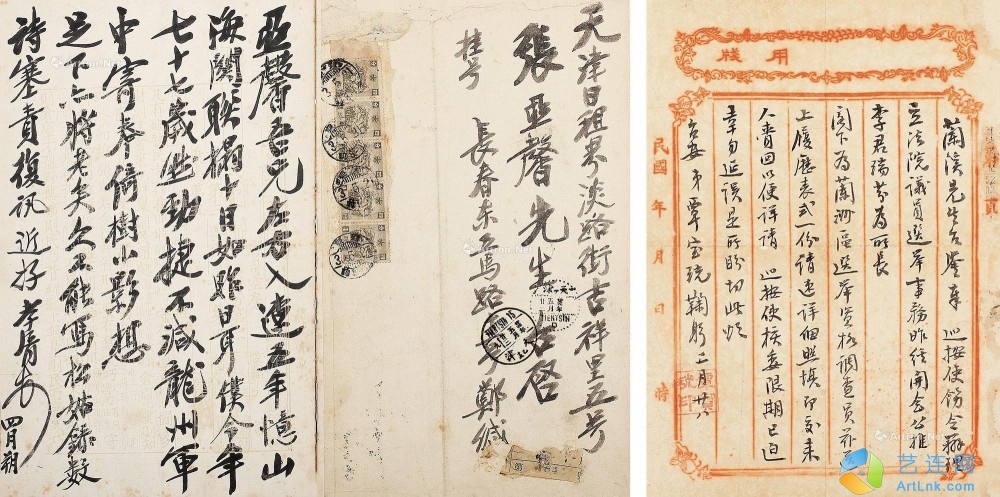 亞馨吾兄左右入連五年憶山
海關聯榻十日如昨日耳僕今年
七十七歲勁捷不減龍州軍
中寄奉倚樹小影想
足下亦將老矣久不能寫松姑錄數
詩塞責復訊近好 孝胥 四月朔
天津日租界淡路街吉祥里五号
張亞馨先生台啓
挂号
長春東萬路 鄭緘
TIENTSIN
用牋
蘭溪先生台鑒奉 巡按使飭令辦理
立法院議員選舉事務昨經開會公推
李君瑞芬為所長
閣下為蘭州區選舉資格調查員茲
上履歷表式一份請速詳細照填即交來
人帶回以便詳請 巡按使核委限期已迫
幸勿延誤是所盼切此頌
台安 弟覃寶琉鞠躬 二月廿
民國 年 月 日 時
頁
艺连网
ArtLnk.com